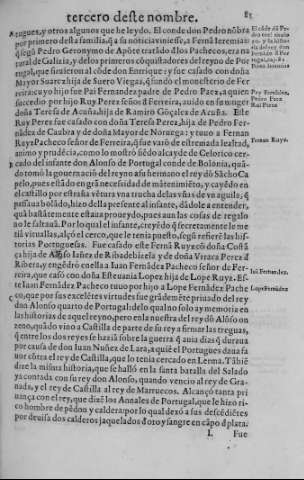 tercero deste nombre.
Rugues, y otros algunos que he leydo. El conde don Pedro nōbra
por primero desta familia, q̄ a su noticia viniesse, a Fernā Ieremias:
q̄ segū Pedro Geronymo de Apōte tratādo d̄los Pachecos, era na
tural de Galizia, y delos primeros cōquistadores del reyno de Por
tugal, que siruieron al cōde don Enrique: y fue casado con doña
Mayor Suarez hija de Suero Viegas, q̄ fundo el monesterio de Fer
reira: cuyo hijo fue Pai Fernandez padre de Pedro Paez, a quien
succedio por hijo Ruy Perez señor d̄ Ferreira, auido en su muger
doña Teresa de Acuña hija de Ramiro Gōçalez de Acuña. Este
Ruy Perez fue casado con doña Teresa Perez, hija de Pedro Fer-
nādez de Caubra y de doña Mayor de Noruega: y touo a Fernan
Ruyz Pacheco señor de Ferreira, q̄ fue varō de estremada lealtad,
animo y prudēcia, como lo mostrō siēdo alcayde de Celorico cer-
cado del infante don Alonso de Portugal conde de Bolonia, quā-
do tomò la gouernaciō del reyno a su hermano el rey dō Sācho Ca
pelo, pues estādo en grā necessidad de mātenimiēto, y cayēdo en
el castillo por estraña vētura vna trucha delas vñas de vn aguila, q̄
passaua bolādo, hizo della presente al infante, dādole a entender,
quā bastātemente estaua proueydo, pues aun las cosas de regalo
no le faltauā. Por lo qual el infante, creyēdo q̄ secretamente le me
tiā vituallas, alçò el cerco, que le tenia puesto, segū refiere las his-
torias Portuguesas. Fue casado este Fernā Ruyz cō doña Costā
ça hija de Alfonso Iañez de Ribadebizela y de doña Vraca Perez d̄
Ribera, y engēdrō en ella a Iuan Fernādez Pacheco señor de Fer-
reira, que casò con doña Esteuania Lopez hija de Lope Ruyz. Es-
te Iuan Fernādez Pacheco tuuo por hijo a Lope Fernādez Pache
co, que por sus excelētes virtudes fue grādemēte priuado del rey
don Alonso quarto de Portugal: delo qual no solo ay memoria en
las historias de aquel reyno, pero en la nuestra del rey dō Alōso on
zeno, quādo vino a Castilla de parte de su rey a firmar las treguas,
q̄ entre los dos reyes se hazia sobre la guerra
por causa de don Iuan Nuñez de Lara, a quiē el Portugues daua fa
uor cōtra el rey de Castilla, que lo tenia cercado en Lerma. Tābiē
dize la misma historia, que se hallò en la santa batalla del Salado
ya contada con su rey don Alonso, quando vencio al rey de Gra-
nada, y el rey de Castilla al rey de Marruecos. Alcançò tanta pri
uança con el rey, que dizē los Annales de Portugal, que le hizo ri-
co hombre de pēdon y caldera: por lo qual dexò a sus descēdiētes
por deuisa dos calderas jaqueladas d̄ oro y sangre en cāpo d̄ plata.
L Fue
Fernan Ruyz.
Iuā Fernandez.
Lope Fernādez